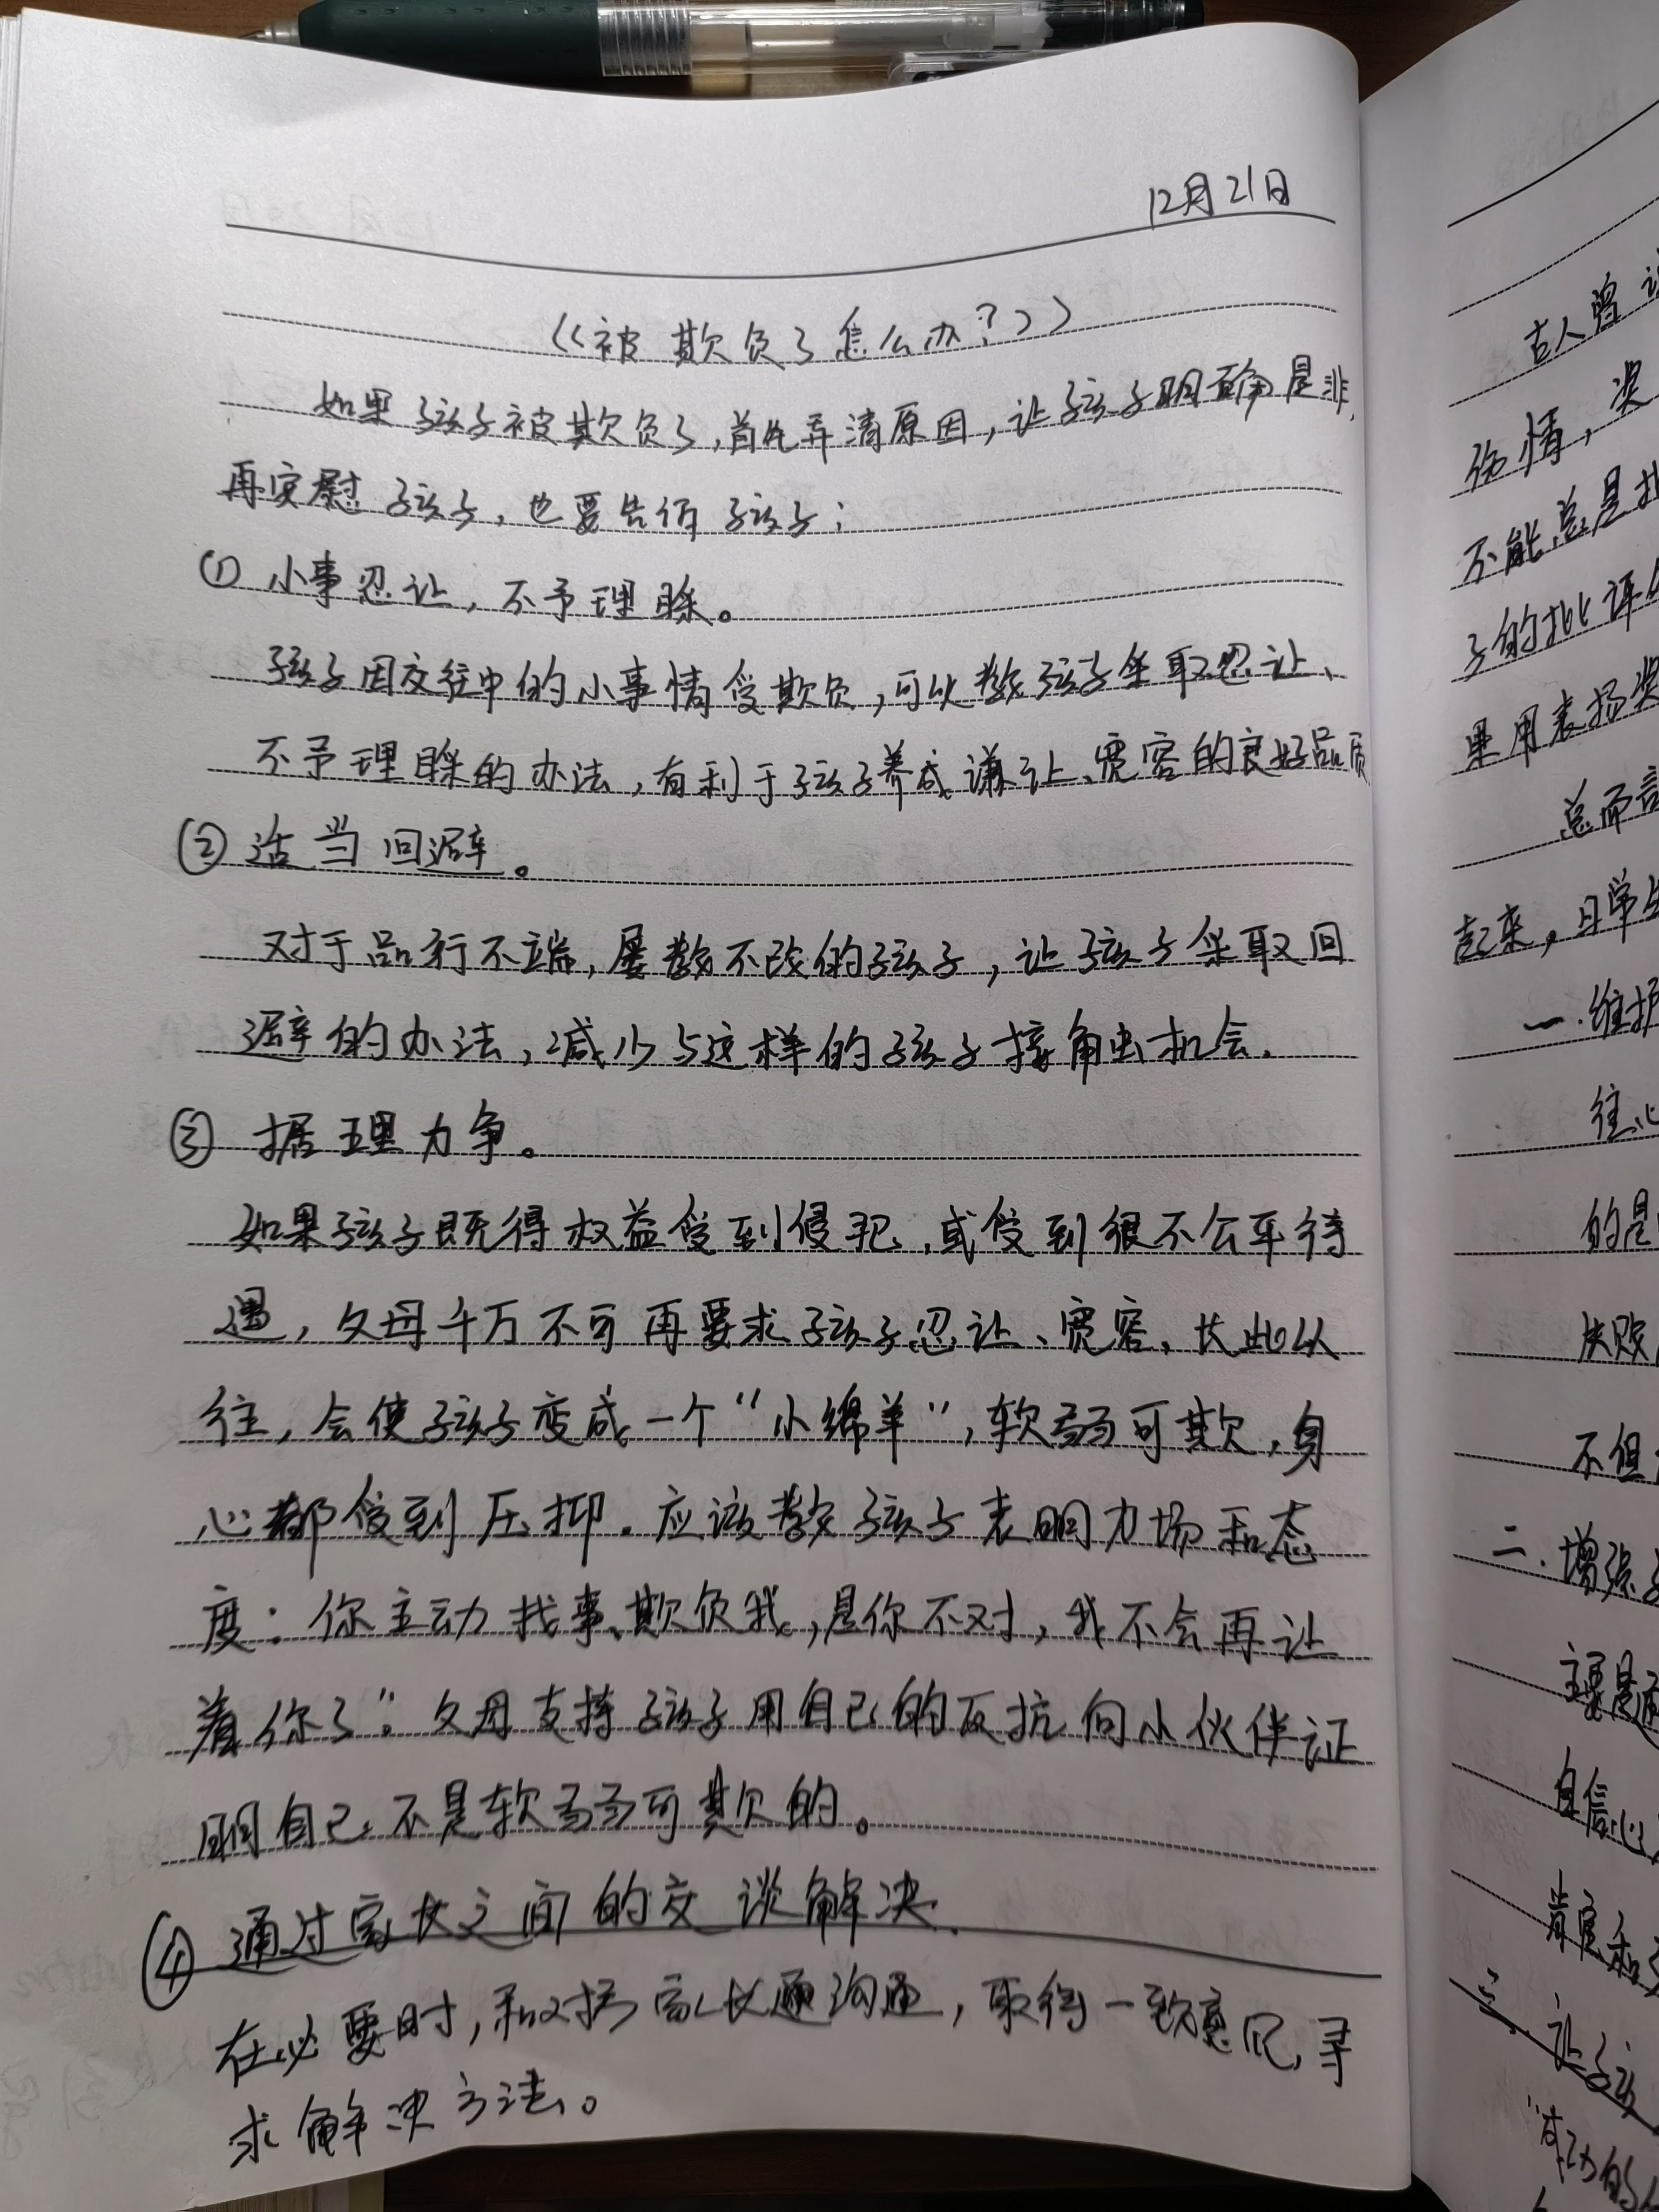 12月21日
《被欺负了怎么办?》
如果孩子被欺负了,首先弄清原因,让孩子明确是非,
再安慰孩子,也要告诉孩子:
① 小事忍让,不予理睬。
孩子因交往中的小事情受欺负,可以教孩子采取忍让、
不予理睬的办法,有利于孩子养成谦让、宽容的良好品质
② 适当回避。
对于品行不端,屡教不改的孩子,让孩子采取回
避的办法,减少与这样的孩子接触机会.
③ 据理力争。
如果孩子既得权益受到侵犯,或受到很不公平待
遇,父母千万不可再要求孩子忍让、宽容,长此以
往,会使孩子变成一个“小绵羊”,软弱可欺,身
心都受到压抑.应该教孩子表明立场和态
度:你主动找事、欺负我,是你不对,我不会再让
着你了”.父母支持孩子用自己的反抗向小伙伴证
明自己不是软弱可欺的。
④ 通过家长之间的交谈解决.
在必要时,和对方家长通沟通,取得一致意见,寻
求解决方法。
古人曾
伤情,奖
不能总是批
子的批评
果用表扬奖
总而言
起来,日常生
一.维护
往心
的是
失败
不但
二.增强
主要是通
自信心
肯定和
三.让孩